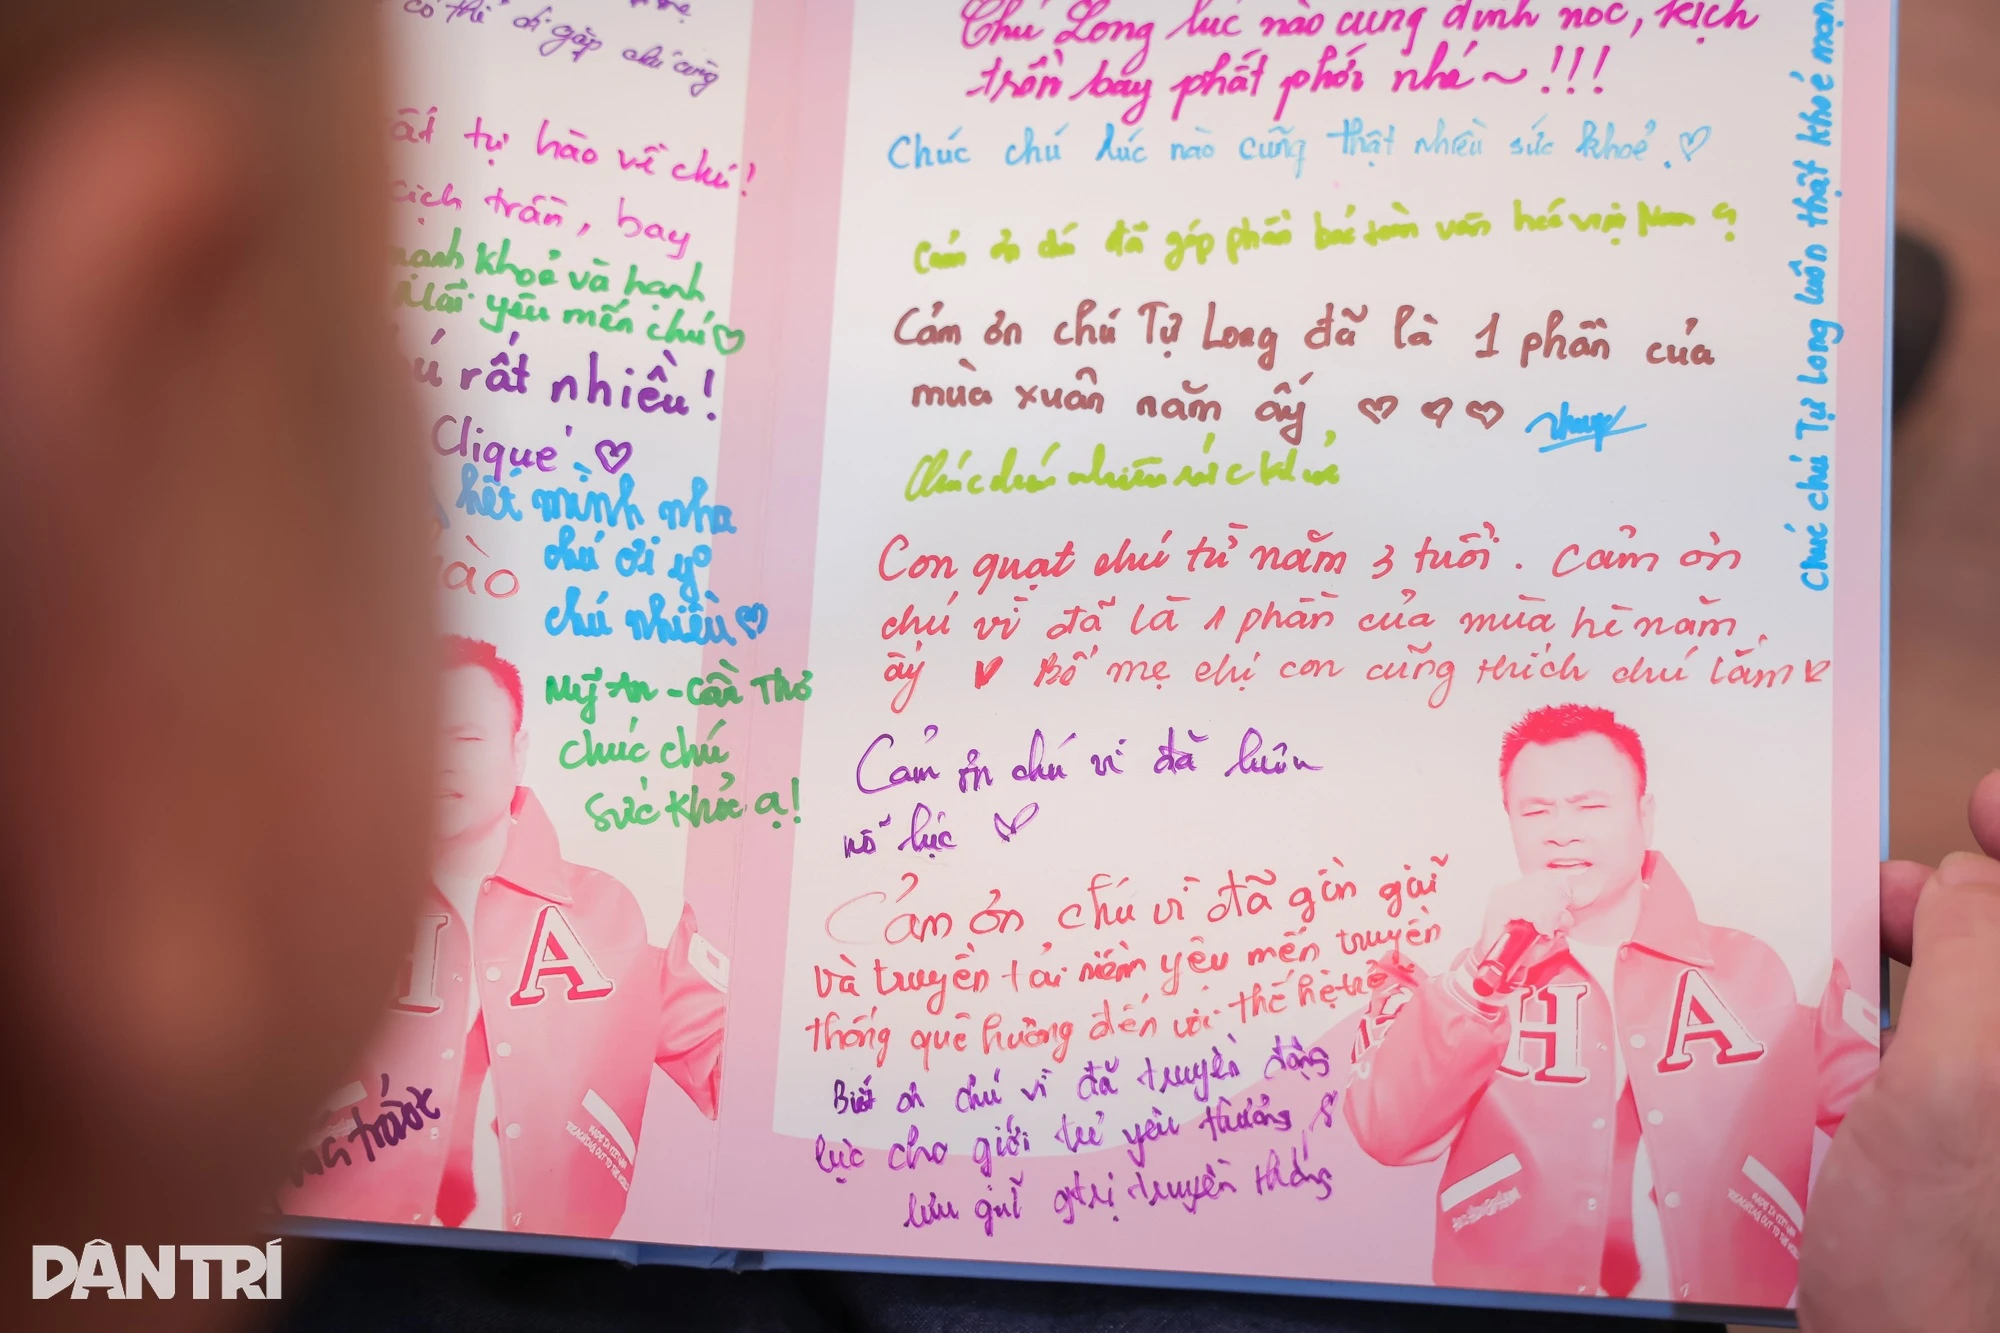 có thể đi gặp chú cùng
tự hào về chú!
kịch trần, bay
mạnh khoẻ và hạnh
Mãi yêu mến chú♡
rất nhiều!
Clique ♡
hết mình nha
chú ơi yo
chú nhiều♡
Mỹ An - Cần Thơ
chúc chú
sức khỏe ạ!
H A
MADE IN VIETNAM
Chú Long lúc nào cũng đỉnh nóc, kịch
trần bay phất phới nhé~!!!
Chúc chú lúc nào cũng thật nhiều sức khoẻ.♡
Cảm ơn chú đã góp phần bảo tồn văn hoá Việt Nam ạ
Cảm ơn chú Tự Long đã là 1 phần của
mùa xuân năm ấy ♡ ♡ ♡
Chúc chú nhiều sức khỏe
Con quạt chú từ năm 3 tuổi. Cảm ơn
chú vì đã là 1 phần của mùa hè năm
ấy ♥ Bố mẹ chị con cũng thích chú lắm♥
Cảm ơn chú vì đã luôn
nỗ lực ♡
Cảm ơn chú vì đã gìn giữ
và truyền tải niềm yêu mến truyền
thống quê hương đến với thế hệ trẻ
Biết ơn chú vì đã truyền động
lực cho giới trẻ yêu thương &
lưu giữ gtrị truyền thống
Chúc chú Tự Long luôn thật khoẻ mạn
H A
MADE IN VIETNAM
DÂN TRÍ